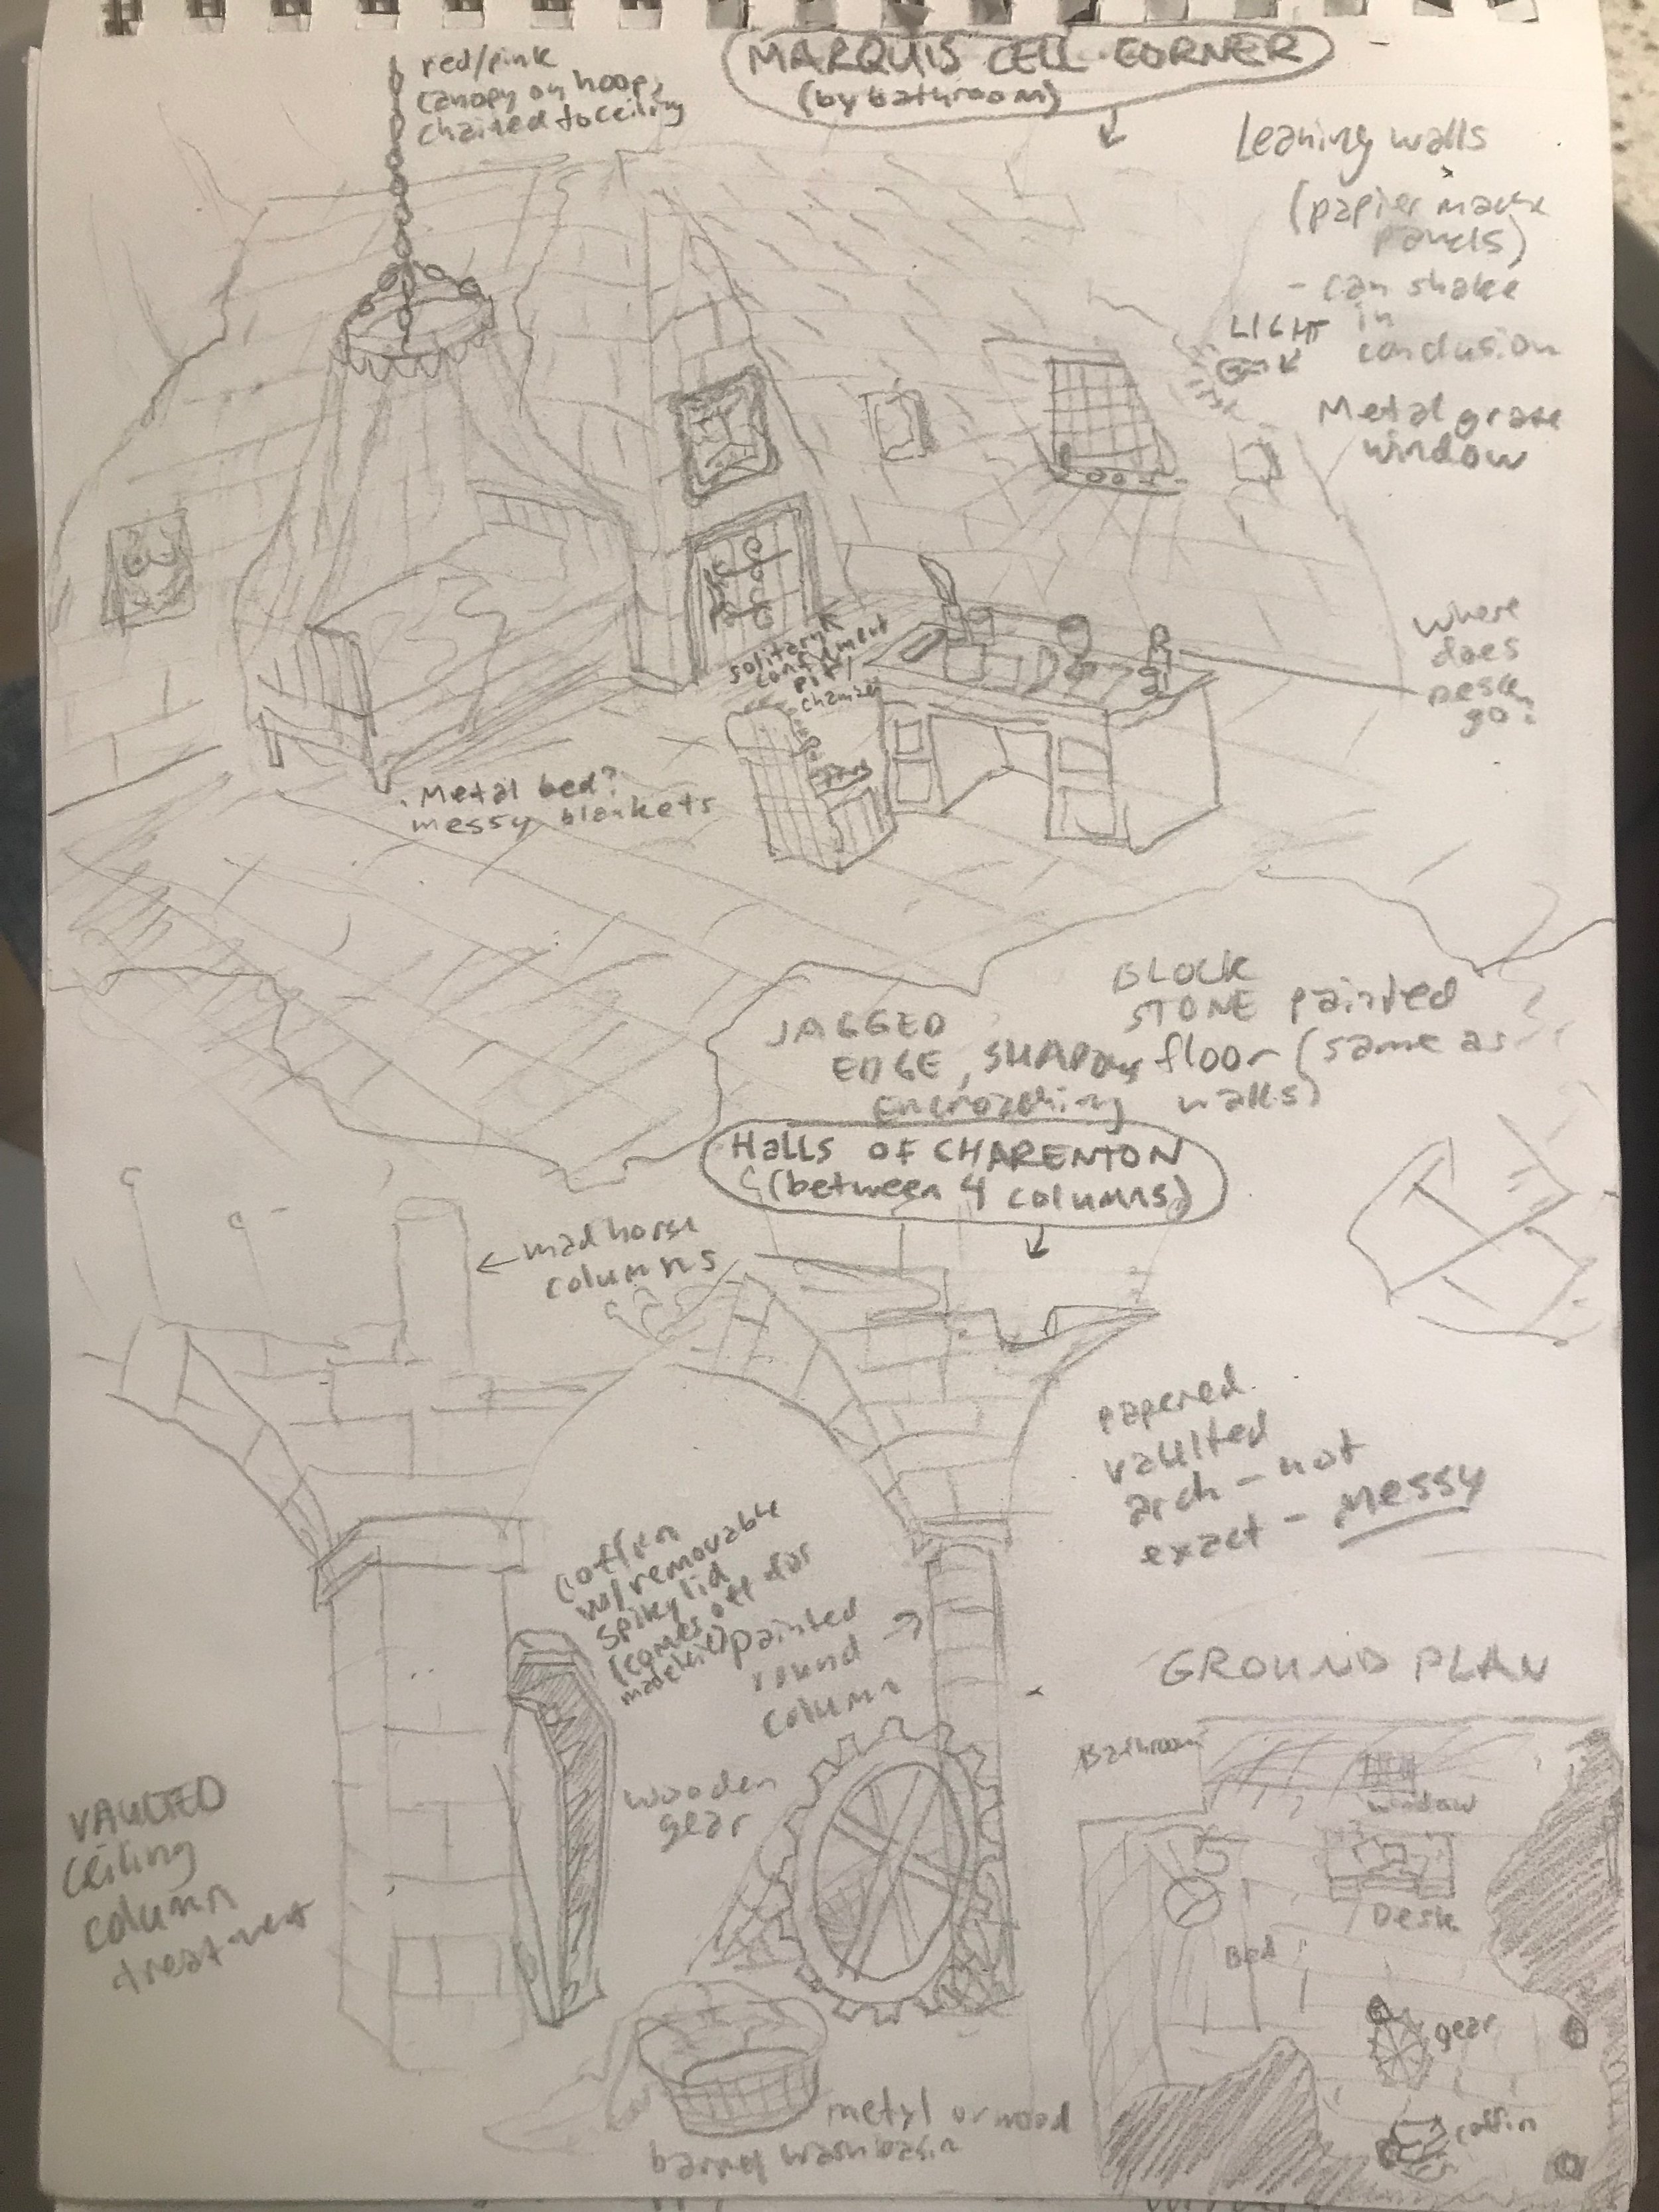 red/pink
canopy on hoop,
chained to ceiling
MARQUIS CELL CORNER
(by bathroom)
Leaning walls
(papier mache
panels)
- can shake
in
conclusion
LIGHT
Metal grate
window
solitary
confinement
pit/
chamber
where
does
desk
go?
Metal bed?
messy blankets
BLOCK
STONE painted
floor (same as
walls)
JAGGED
EDGE, SHADOWS
Encroaching
Halls OF CHARENTON
(between 4 columns)
← madhorse
columns
papered
vaulted
arch - not
exact - MESSY
coffin
w/removable
spiky lid
(comes off for
painted
round
column
wooden
gear
VAULTED
ceiling
column
treatment
metal or wood
barrel washbasin
GROUND PLAN
Bathroom
window
Desk
Bed
gear
coffin